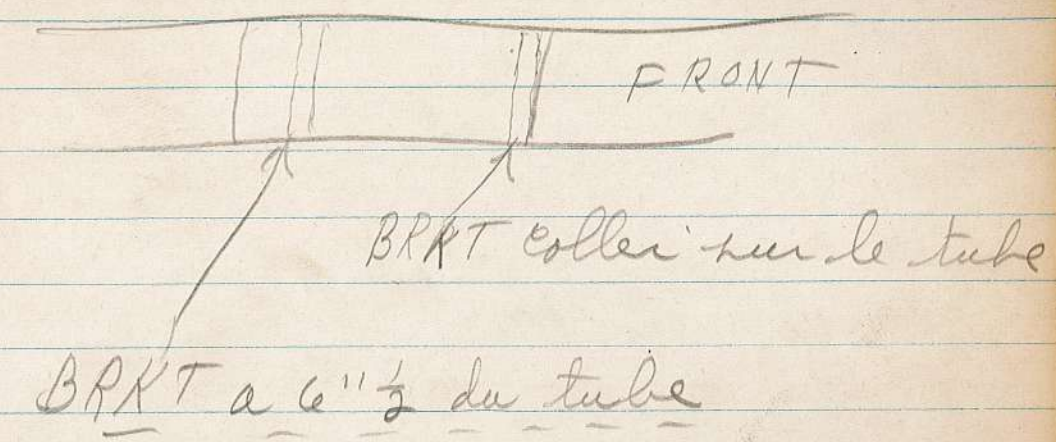 FRONT
BRKT coller sur le tube
BRKT a 6"½ du tube